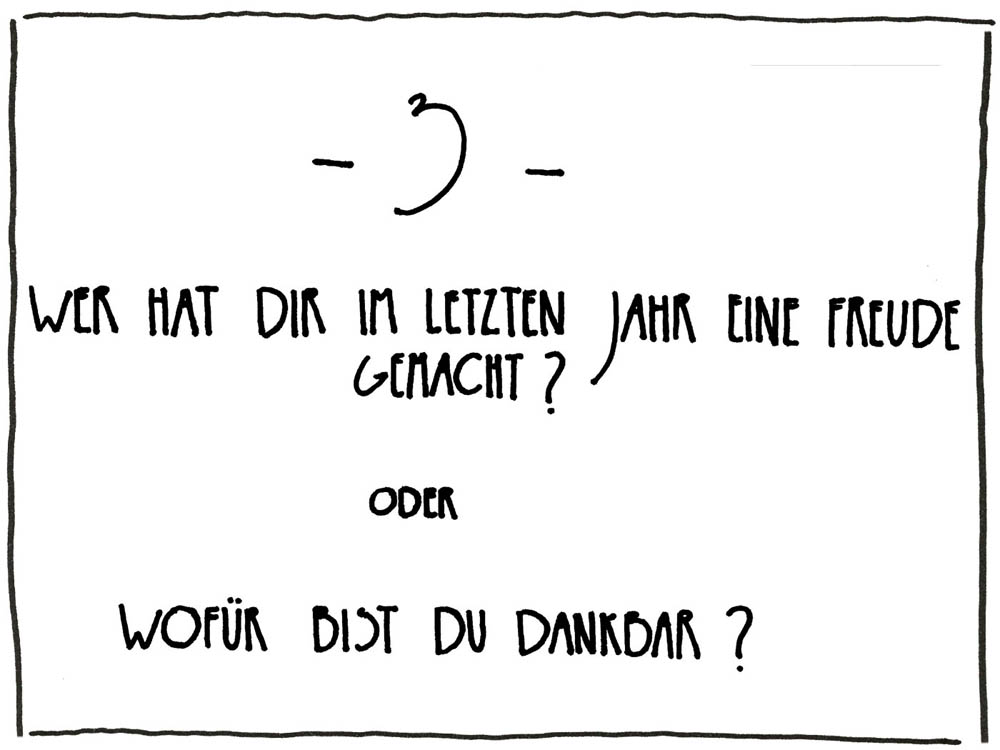 - 3 -
WER HAT DIR IM LETZTEN JAHR EINE FREUDE
GEMACHT?
ODER
WOFÜR BIST DU DANKBAR?